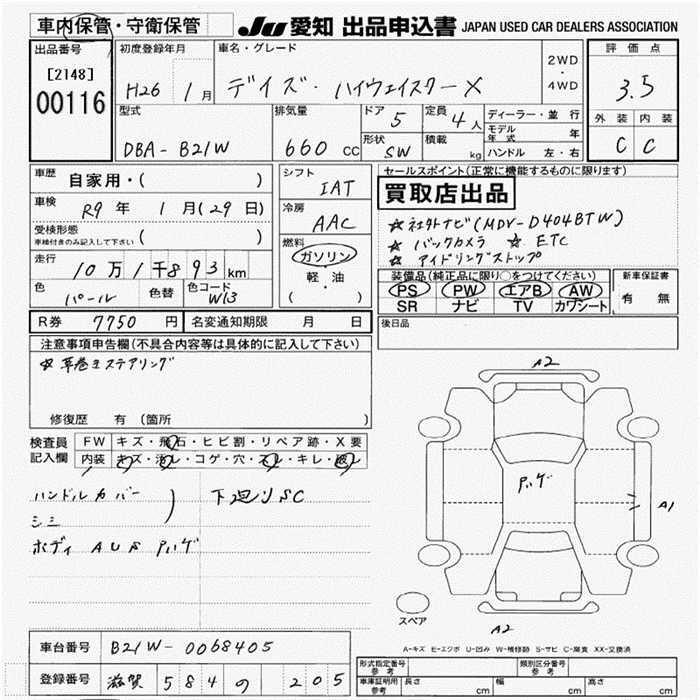 車内保管・守衛保管
JU 愛知 出品申込書 JAPAN USED CAR DEALERS ASSOCIATION
出品番号 初度登録年月 車名・グレード 評価点
[2148]
00116 H26 1月 デイズ・ハイウェイスターX 2WD・4WD 3.5
型式 排気量 ドア 5 定員 4人 ディーラー・並行 外装 内装
モデル年式 年
DBA-B21W 660cc 形状 SW 積載 kg ハンドル 左・右 C C
車歴 自家用・( ) シフト IAT セールスポイント(正常に機能するものに限ります)
買取店出品
車検 R9年 1月(29日) 冷房 AAC ☆社外ナビ(MDV-D404BTW)
受検形態 車検付きのみ記入して下さい ( ) ☆バックカメラ ☆ETC
燃料 ガソリン・軽・油 ( ) ☆アイドリングストップ
走行 10万1千893km 装備品(純正品に限り○をつけてください) 新車保証書
色 パール 色替 色コード W13 PS PW エアB AW 有 無
SR ナビ TV カワシート
R券 7750円 名変通知期限 月 日 後日品
注意事項申告欄(不具合内容等は具体的に記入して下さい)
☆革巻きステアリング
修復歴 有 (箇所 )
検査員記入欄 FW キズ・飛石・ヒビ割・リペア跡・X要
内装 キズ・汚レ・コゲ・穴・スレ・キレ・破レ
ハンドルカバー 下廻りSC
シミ
ボディ AUS Pハゲ
A2
Pハゲ
A1
スペア
A2
A-キズ E-エクボ U-凹み W-補修跡 S-サビ C-腐食 XX-交換済
車台番号 B21W-0068405
登録番号 滋賀 584 の 205
形式指定番号 参考 類別区分番号 参考
車庫証明用 参考 長さ cm 幅 cm 高さ cm